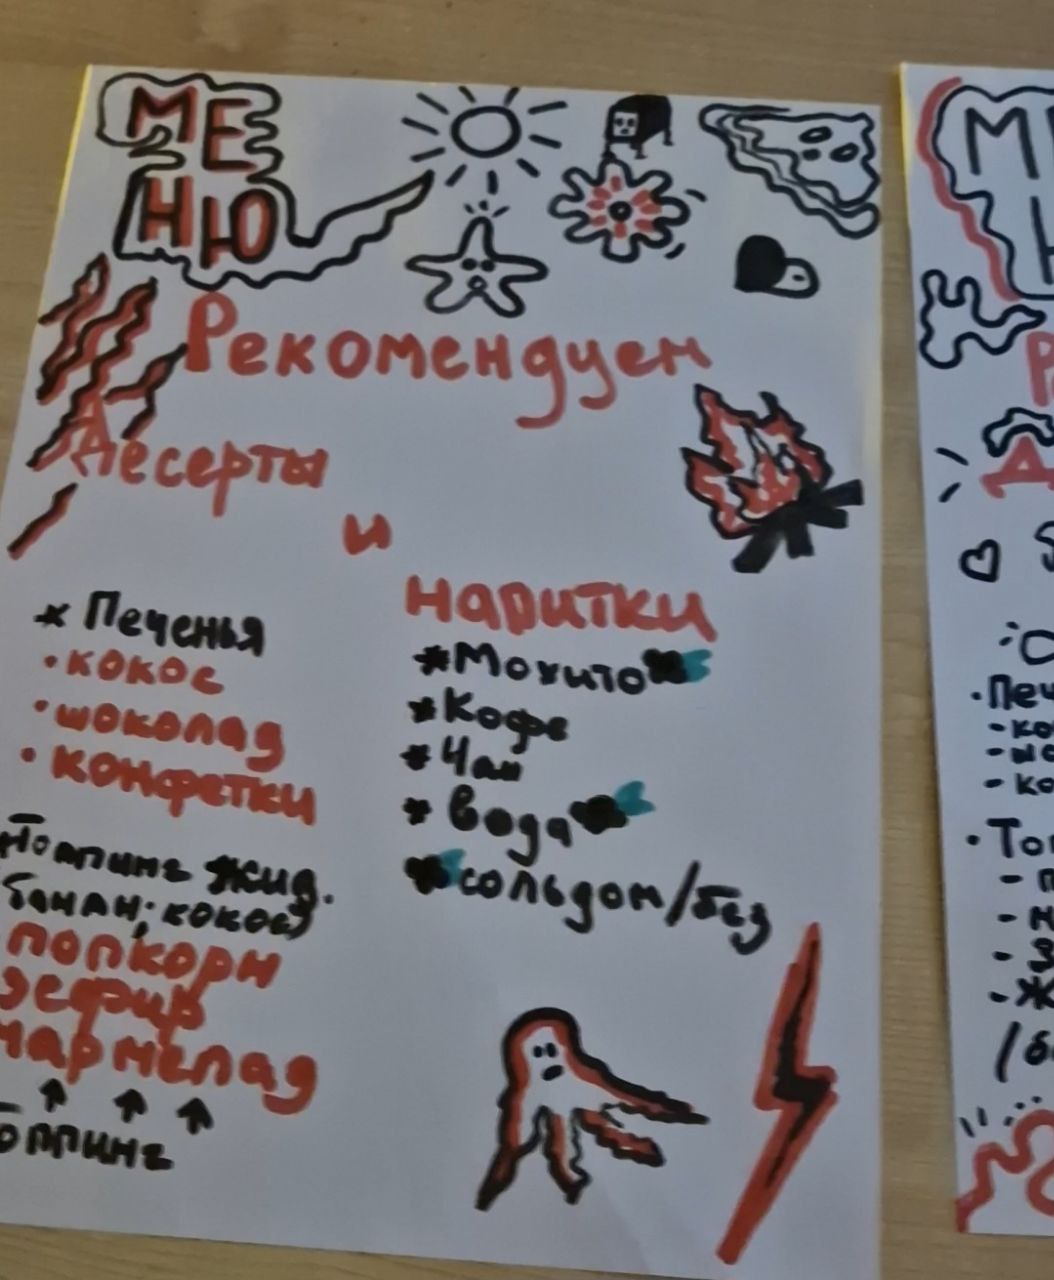 МЕ
НЮ
Рекомендуем
Десерты
и
* Печенья
· кокос
· шоколад
· конфетки
Топпинг жид.
банан; кокос)
попкорн
зефир
мармелад
оппинг
напитки
* Мохито
* Кофе
* Чаи
* Вода
* сольдом/без
М
Р
Д
· Печ
- ко
- шо
- ко
· Топ
- п
- м
- з
- ж
/б